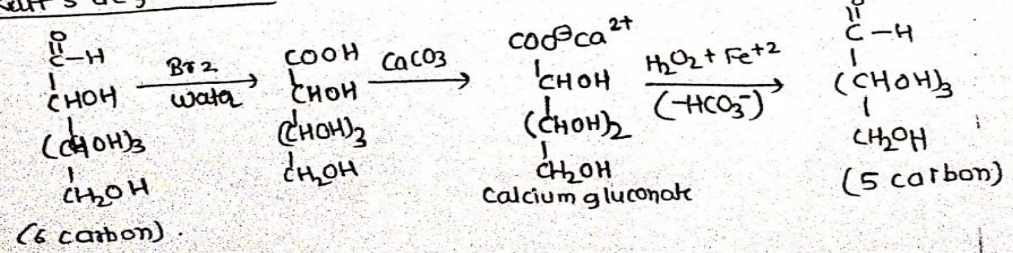 O
C-H
CHOH
(CHOH)3
CH2OH
(6 carbon).
Br2
water
COOH
CHOH
(CHOH)3
CH2OH
CaCO3
COO⊖Ca2+
CHOH
(CHOH)2
CH2OH
Calcium gluconate
H2O2 + Fe+2
(-HCO3-)
C-H
(CHOH)3
CH2OH
(5 carbon)